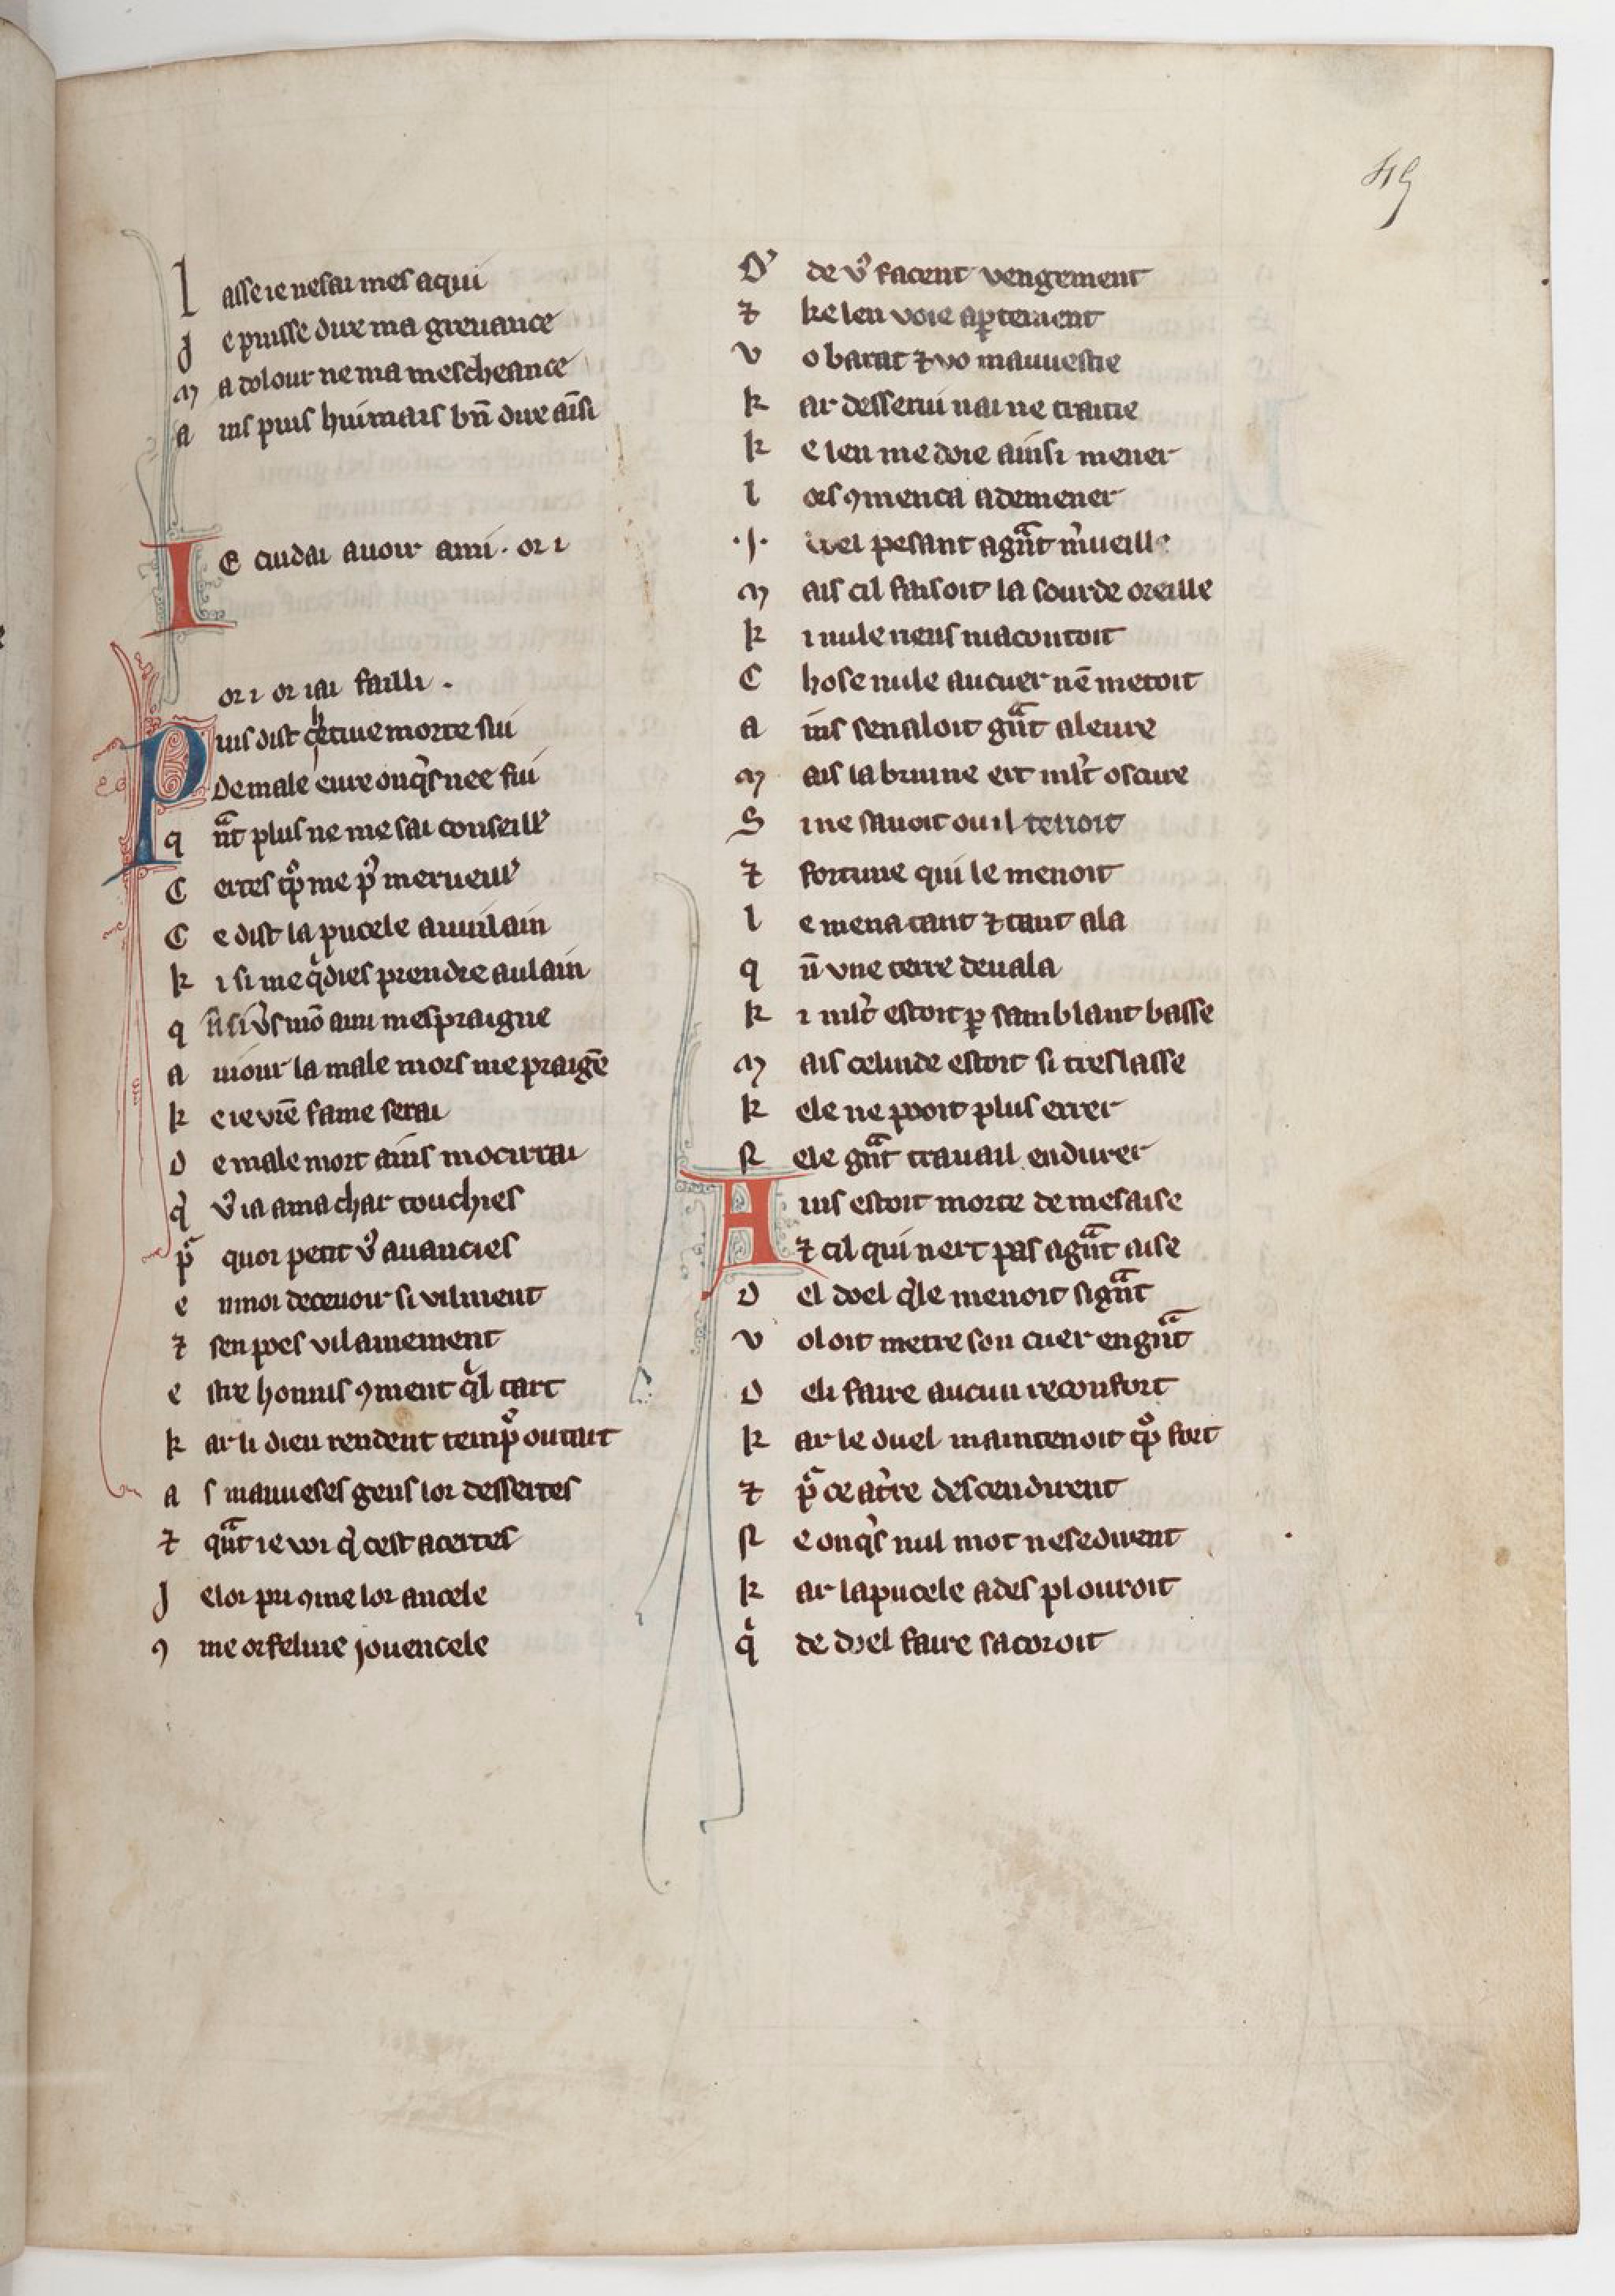 49
l asse ie ne sai mes a qui
J e puisse dire ma greuance
m a dolour ne ma mescheance
a ins puis huimais bn̄ dire aīsi
I E cuidai auoir ami. or i
or i or iai failli.
P uis dist chetiue morte sui
De male eure onq̉s nee fui
q ᷓnt plus ne me sai conseillʼ
C ertes tp̊ me pʼ merueillʼ
C e dist la pucele au uilain
k i si me q̉dies prendre au lain
q n̄ si vʼs mō ami mespraigne
a niour la male mors me praigē
k e ie vr̄e fame serai
D e male mort ains mocirrai
q̉ vʼ ia a ma char touchies
pᷓ quor petit vʼ auancies
e n moi deceuoir si vilment
⁊ sen poes vilainement
e stre honnis ꝯment q̉l tart
k ar li dieu rendent temp̊ ou tart
a s mauueses gens lor dessertes
⁊ qᷓnt ie voi q̉ cest a certes
J e lor pri ꝯme lor ancele
ꝯ me orfeline jouencele
Dʼ de vʼ facent vengement
⁊ ke len voie aꝑtement
v o barat ⁊ vo mauuestie
k ar desserui nai ne traitie
k e len me doie ainsi mener
l ors ꝯmenca a demener
.I. doel pesant a gᷓnt mʼueille
m ais cil faisoit la sourde oreille
k i nule riens nacontoit
C hose nule au cuer nē metoit
a ins sen aloit gᷓnt aleure
m ais la bruine ert ml̄t oscure
S i ne sauoit ou il tenoit
⁊ fortune qui le menoit
l e mena tant ⁊ tant ala
q n̄ vne terre deuala
k i ml̄t estoit ꝑ samblant basse
m ais celinde estoit si tres lasse
k ele ne pooit plus errer
N e le gᷓnt trauail endurer
A ins estoit morte de mesaise
⁊ cil qui nert pas a gᷓnt aise
D el doel q̉le menoit si gᷓnt
v oloit metre son cuer en gᷓnt
D e li faire aucun reconfort
k ar le duel maintenoit tp̊ fort
⁊ pᷓ ce a tʼre descendirent
N e onq̉s nul mot ne se dirent
k ar la pucele ades plouroit
q̉ de doel faire sacoroit